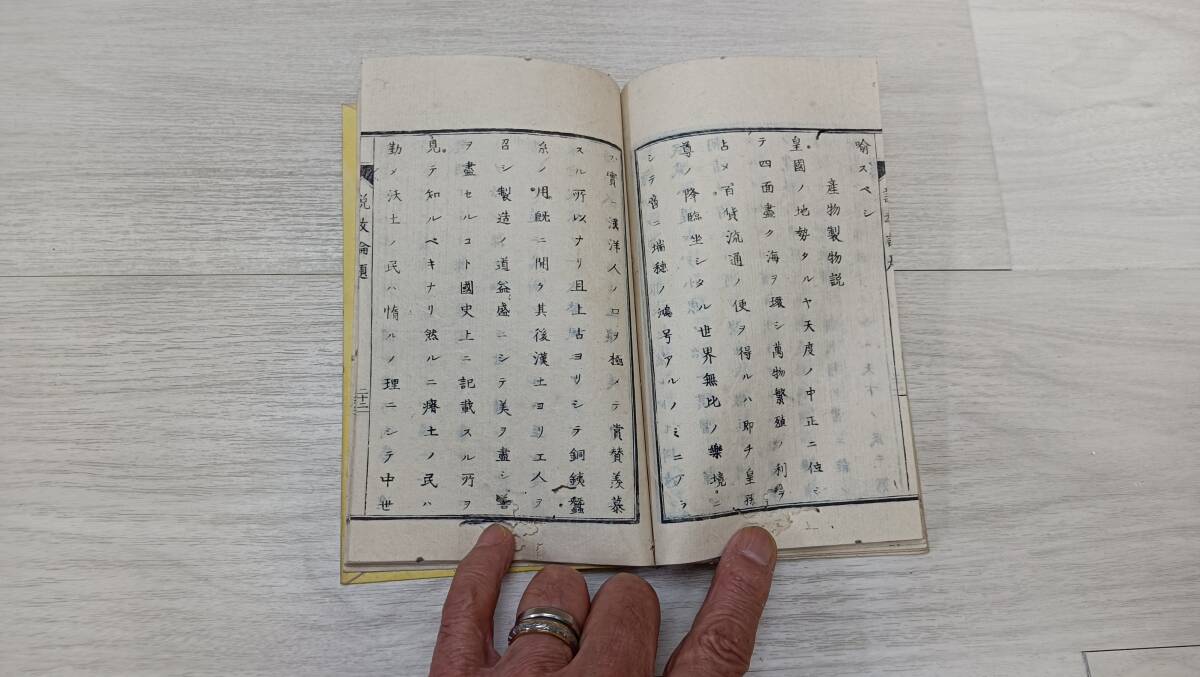 喩スベシ
産物製物説
皇國ノ地勢タルヤ天度ノ中正ニ位シ
テ四面盡ク海ヲ環シ萬物繁殖ノ利ヲ
占メ百貨流通ノ便ヲ得ルハ即チ皇孫
尊ノ降臨坐シタル世界無比ノ樂境ニ
シテ啻ニ瑞穂ノ鴻号アルノミニアラ
ス實ニ洋人ノ口ヲ極メテ賞賛羨慕
スル所以ナリ且上古ヨリシテ銅銕蠶
糸ノ用既ニ開ク其後漢土ヨリ工人ヲ
召シ製造ノ道益盛ニシテ美ヲ盡シ善
ヲ盡セルコト國史上ニ記載スル所ヲ
見テ知ルベキナリ然ルニ瘠土ノ民ハ
勤メ沃土ノ民ハ惰ルノ理ニシテ中世
説教論題
二十二